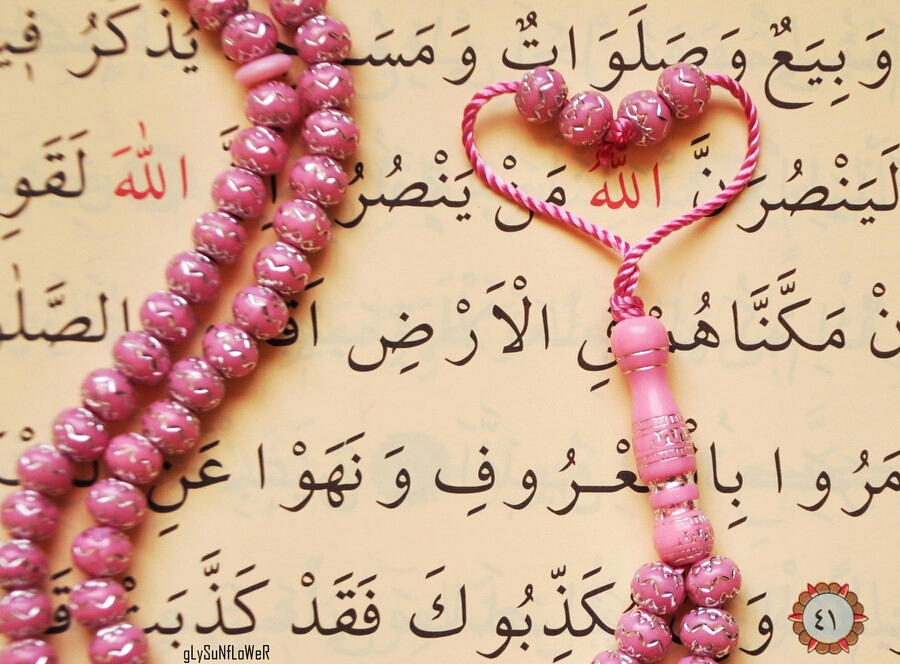 وَبِيَعٌ وَصَلَوَاتٌ وَمَسَـ يُذْكَرُ فِي
لَيَنْصُرَنَّ اللّٰهُ مَنْ يَنْصُرُ اللّٰهَ لَقَوِ
مَكَّنَّاهُمْ فِي الْاَرْضِ الصَّلٰو
مَرُوا بِالْمَعْرُوفِ وَنَهَوْا عَنِ
٤١ وَ يُكَذِّبُوكَ فَقَدْ كَذَّبَتْ قَ
gLySuNfLoWeR